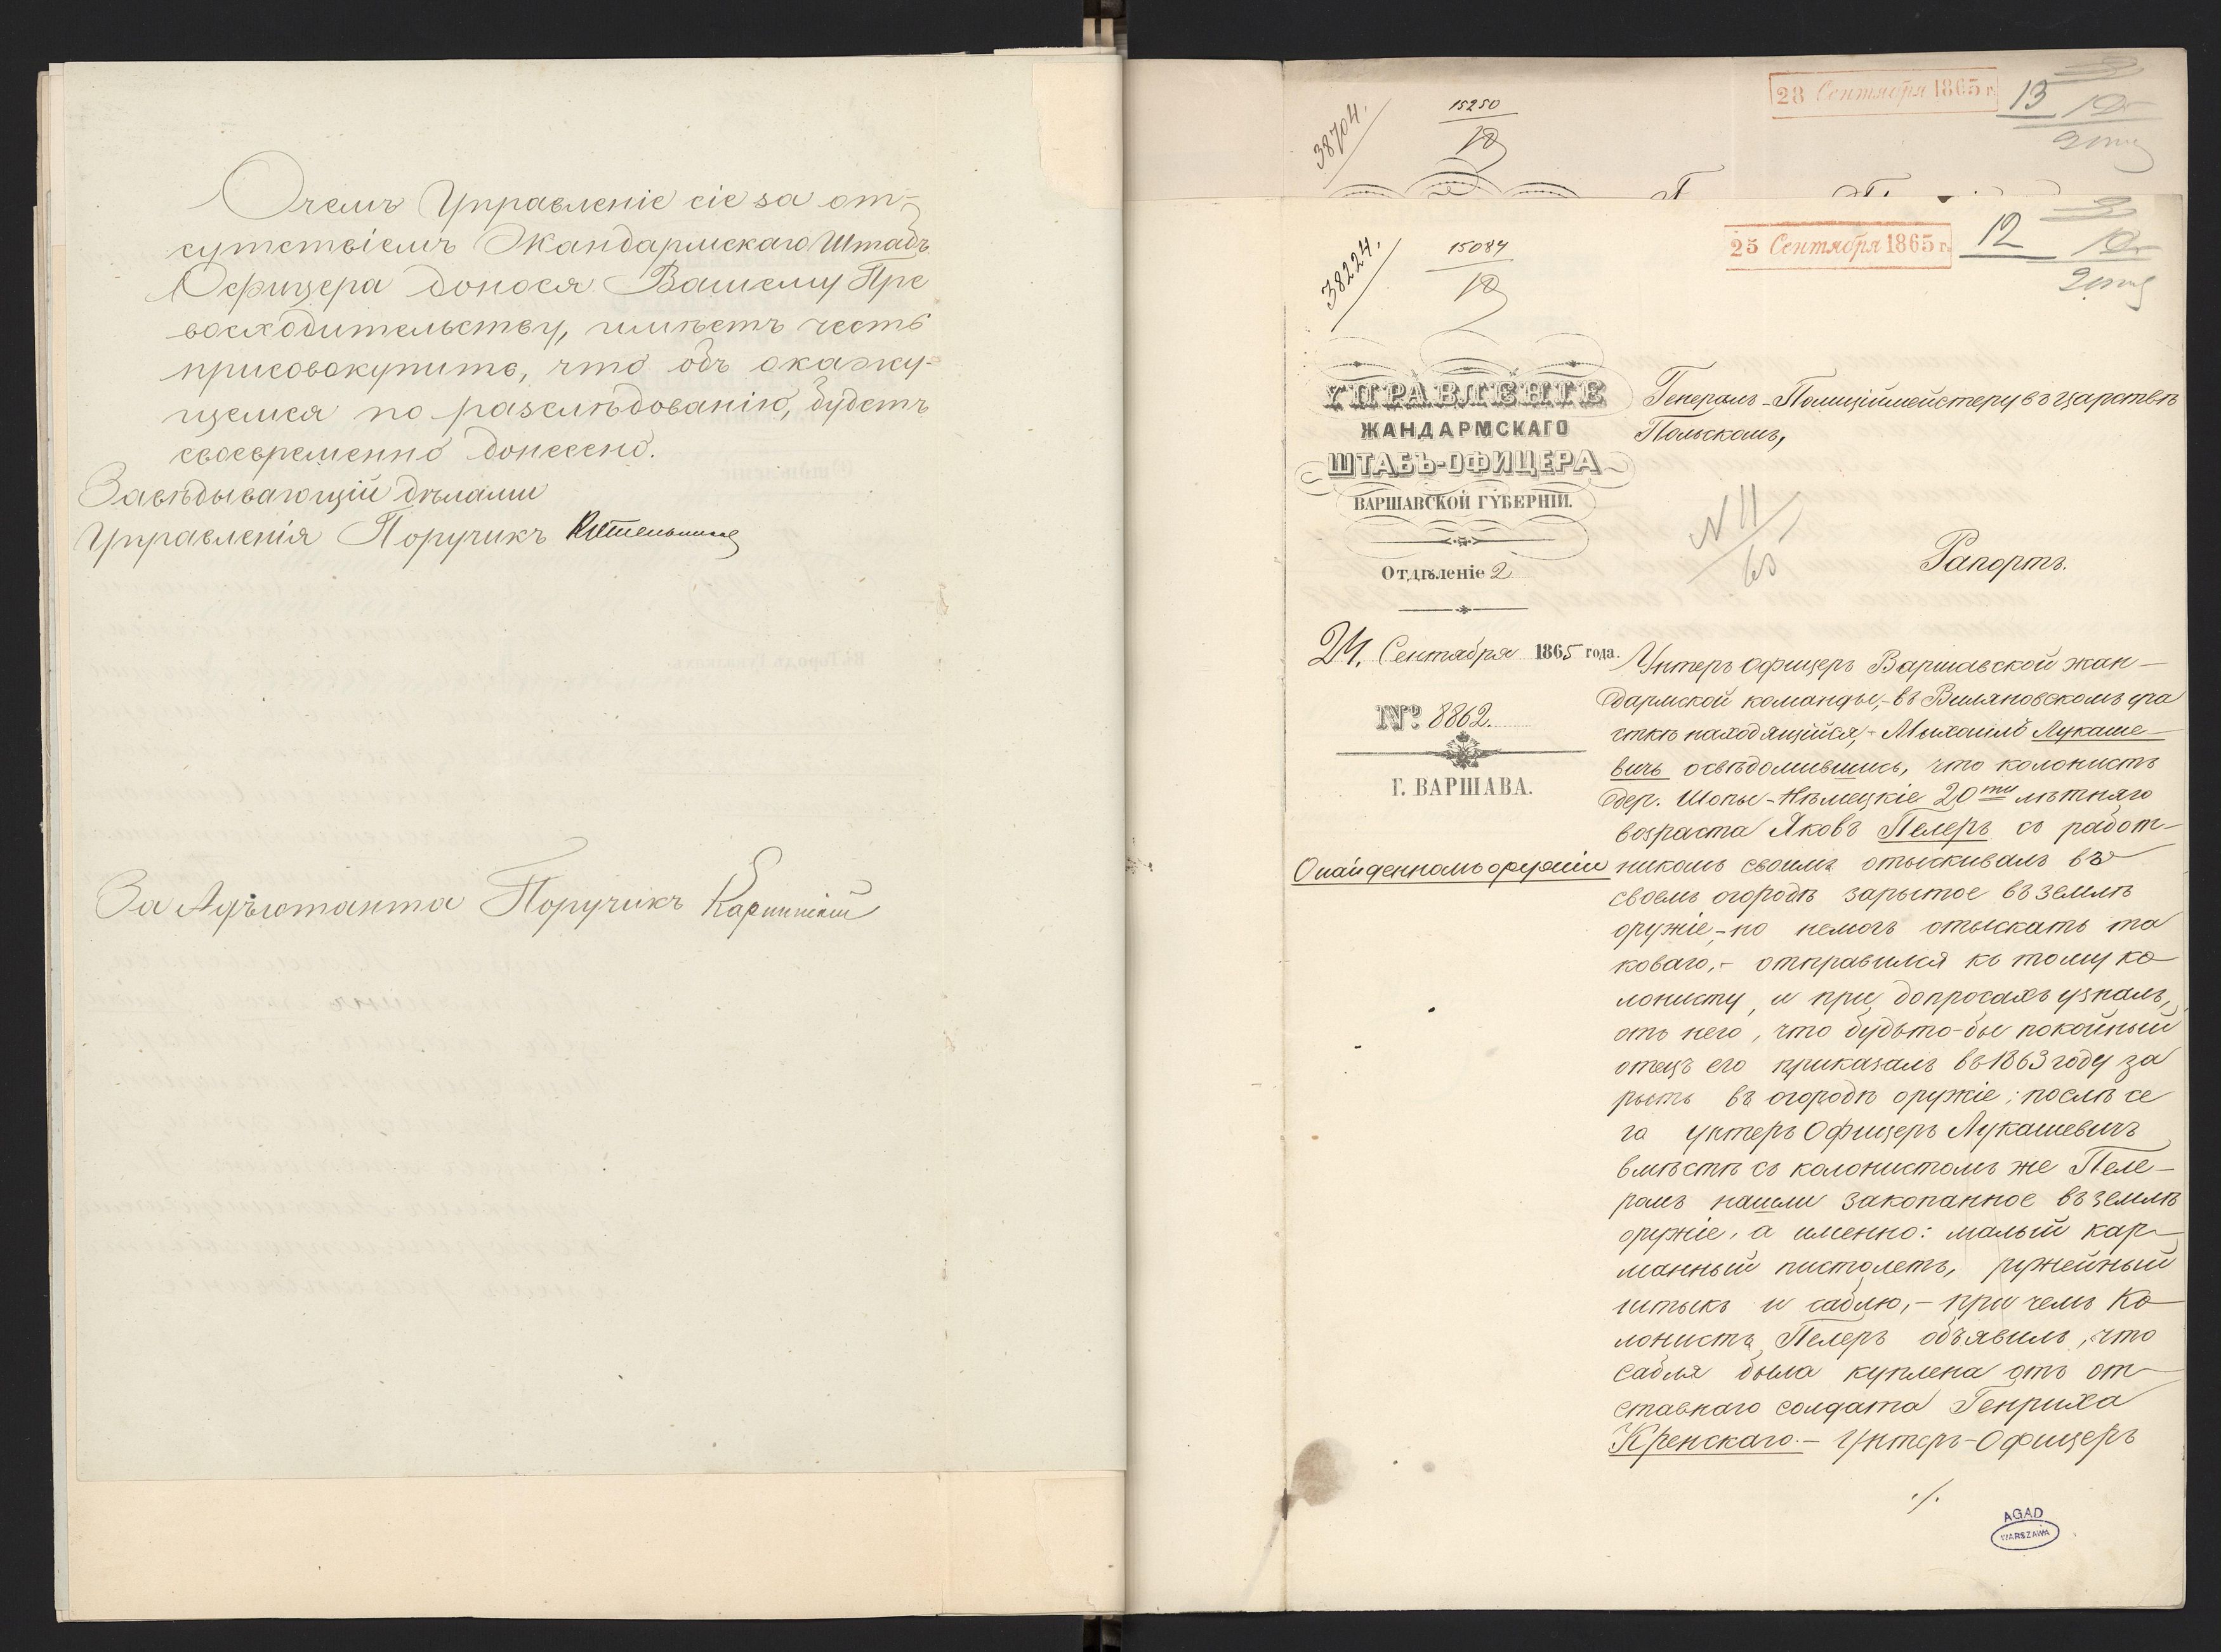 О чемъ Управленіе сіе за от-
сутствіемъ Жандармскаго Штабъ
Офицера донося Вашему Пре
восходительству, имѣетъ честь
присовокупить, что объ окажу-
щемся по разслѣдованію, будетъ
своевременно донесено.
Завѣдывающій дѣлами
Управленія Поручикъ
За Адъютанта Поручикъ
28 Сентября 1865 г.
13
38704.
15250
25 Сентября 1865 г.
12
38224.
15084
УПРАВЛЕНІЕ
ЖАНДАРМСКАГО
ШТАБЪ-ОФИЦЕРА
ВАРШАВСКОЙ ГУБЕРНІИ.
Отдѣленіе 2
24 Сентября 1865 года.
№ 8862.
Г. ВАРШАВА.
О найденномъ оружіи
Генералъ-Полиціймейстеру въ Царствѣ
Польскомъ,
N 11
65
Рапортъ.
Унтеръ офицеръ Варшавской жан-
дармской команды,- въ Виляновскомъ уча
сткѣ находящійся,- Михаилъ Лукаше-
вичъ освѣдомившись, что колонистъ
дер. Шопы-Нѣмецкіе 20ти лѣтняго
возраста Яковъ Пелеръ съ работ-
никомъ своимъ отыскивалъ въ
своемъ огородѣ зарытое въ землѣ
оружіе,- но немогъ отыскать та
коваго,- отправился къ тому ко
лонисту, и при допросахъ узналъ,
отъ него, что будьто-бы покойный
отецъ его приказалъ въ 1863 году за
рыть въ огородѣ оружіе; послѣ се
го Унтеръ Офицеръ Лукашевичъ
вмѣстѣ съ колонистомъ же Пеле-
ромъ нашли закопанное въ землѣ
оружіе, а именно: малый кар-
манный пистолетъ, ружейный
штыкъ и саблю,- при чемъ Ко
лонистъ Пелеръ объявилъ, что
сабля была куплена отъ от-
ставнаго солдата Генриха
Кренскаго.- Унтеръ-Офицеръ
./.
AGAD
WARSZAWA